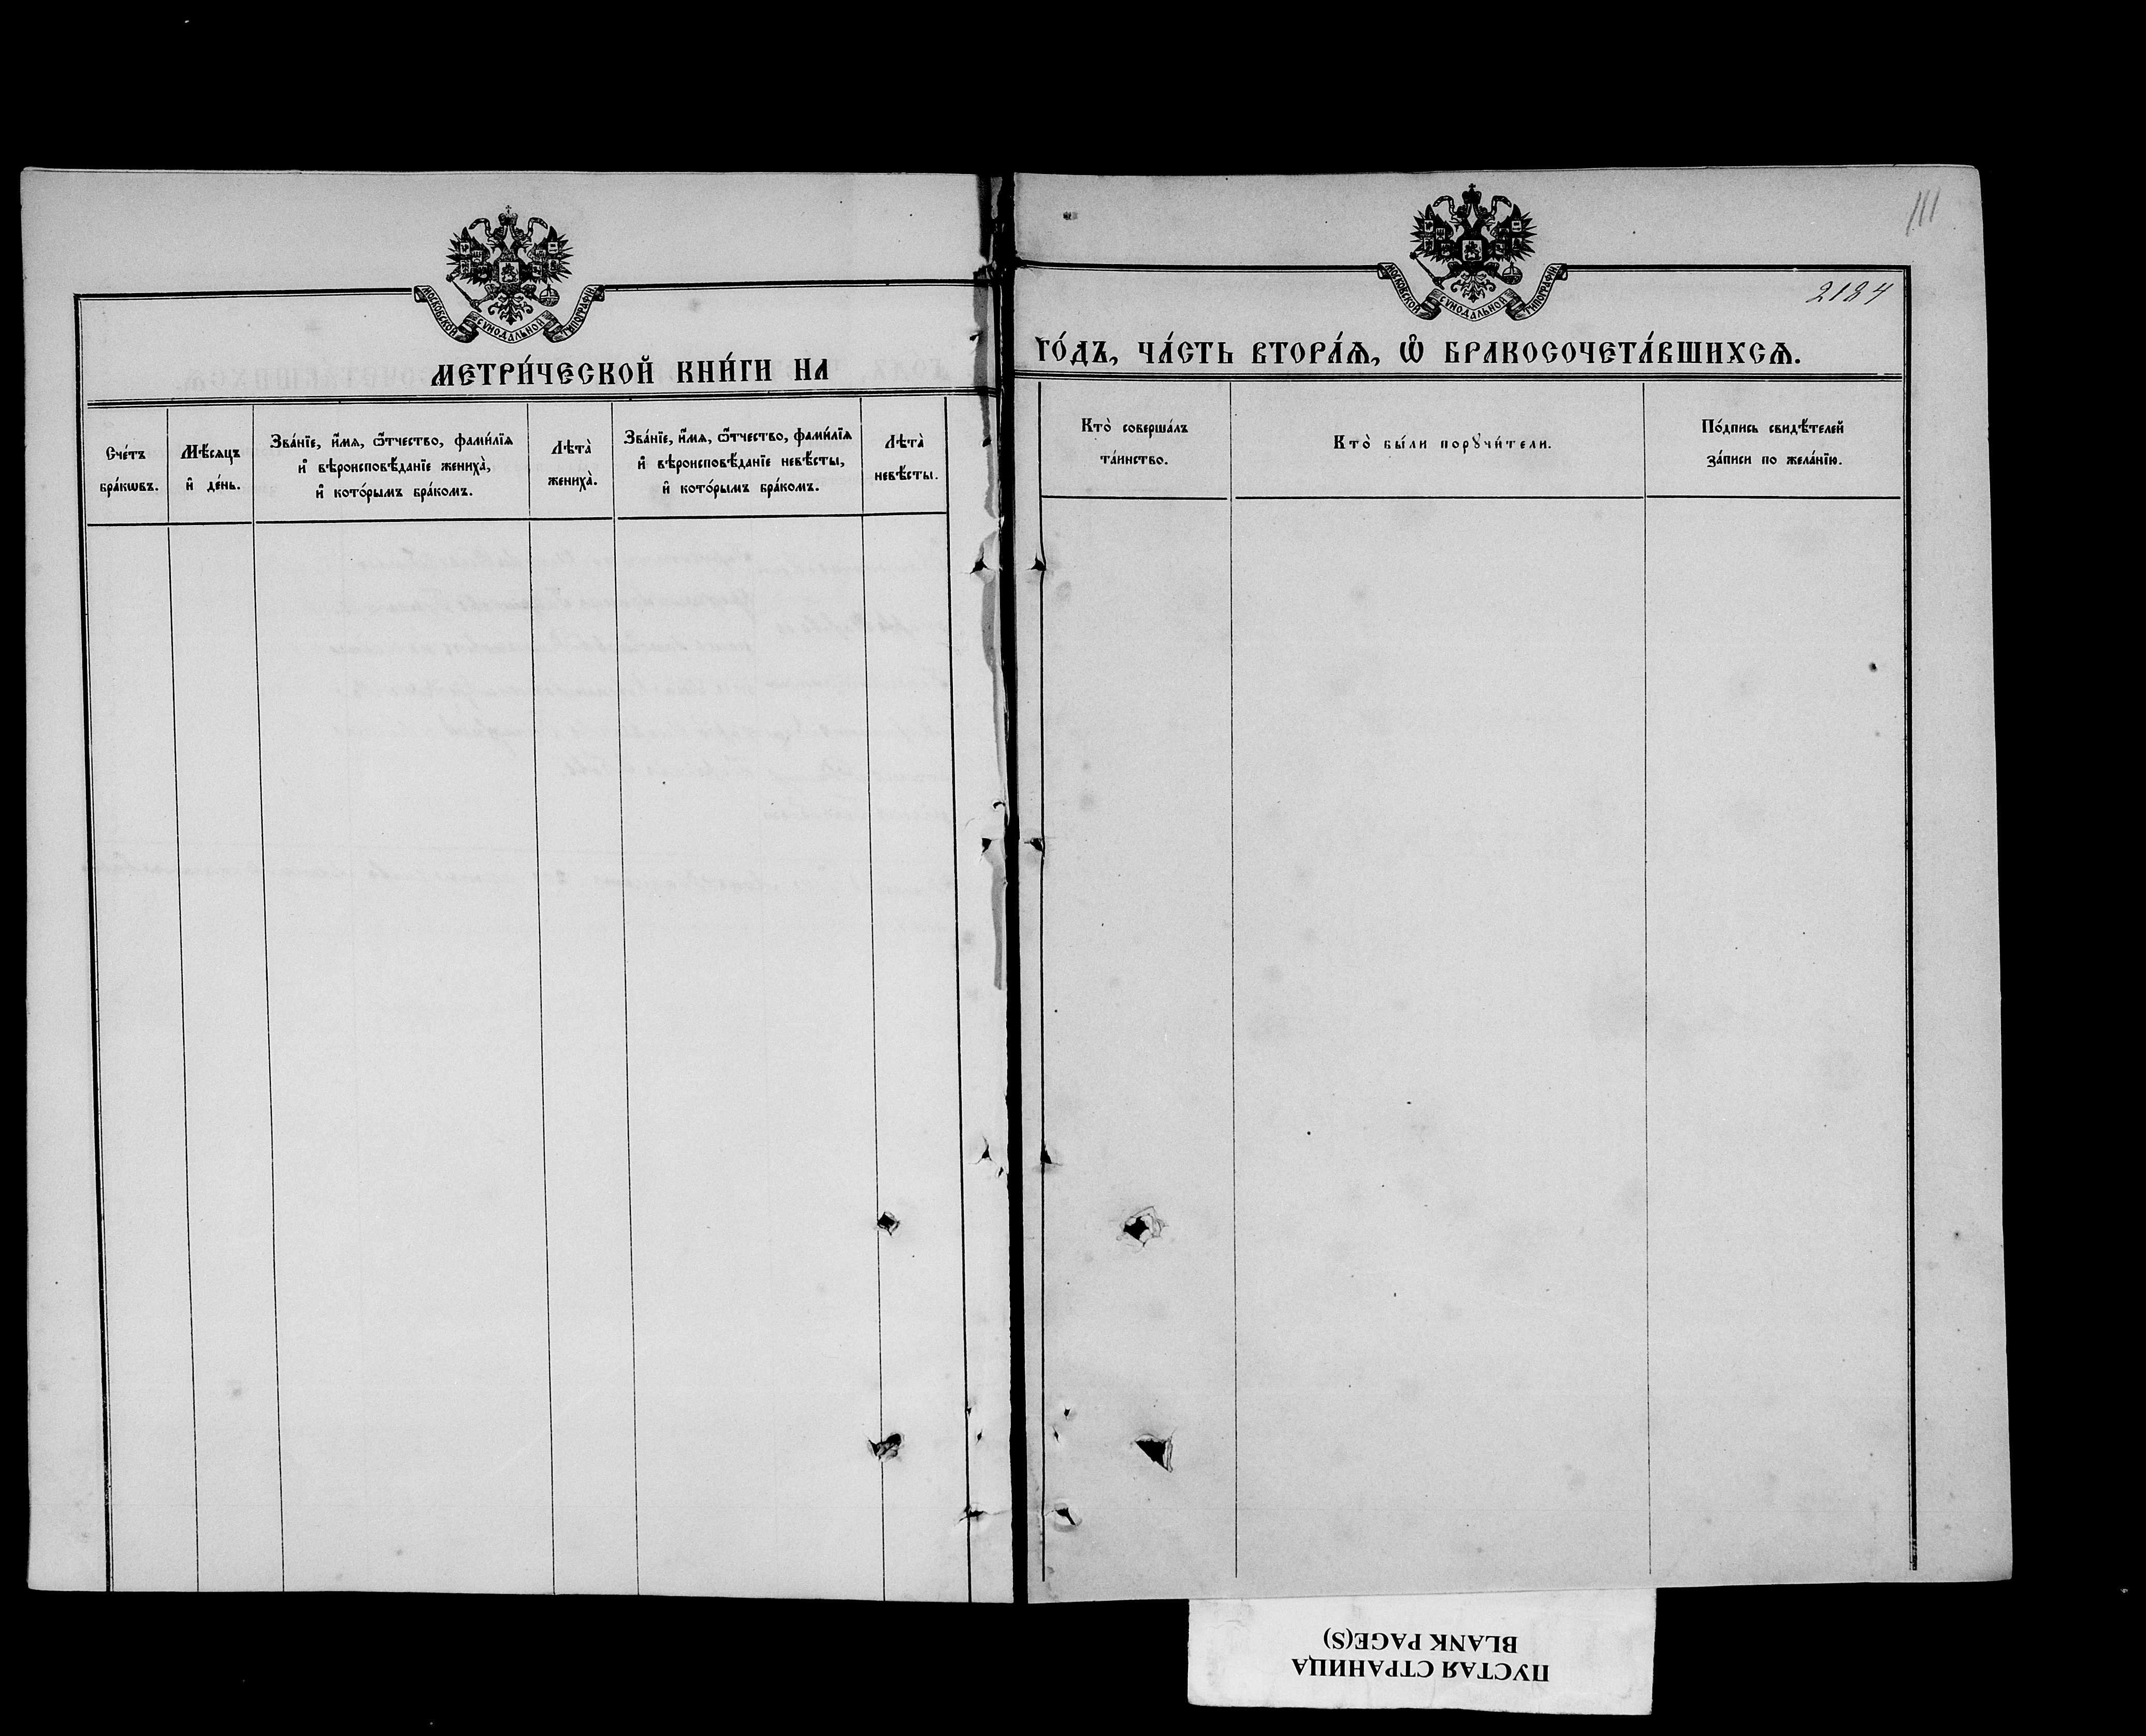 МОСКОВСКОЙ СУНОДАЛЬНОЙ ТИПОГРАФІИ
МЕТРИ́ЧЕСКОЙ КНИ́ГИ НА
Сче́тъ
бра́кѡвъ.
Мѣ́сяцъ
и҆ де́нь.
Зва́нїе, и҆́мѧ, ѻ҆́тчество, фами́лїѧ
и҆ вѣроисповѣ́данїе жениха̀,
и҆ кото́рымъ бра́комъ.
Лѣта̀
жениха̀.
Зва́нїе, и҆́мѧ, ѻ҆́тчество, фами́лїѧ
и҆ вѣроисповѣ́данїе невѣ́сты,
и҆ кото́рымъ бра́комъ.
Лѣта̀
невѣ́сты.
111
МОСКОВСКОЙ СУНОДАЛЬНОЙ ТИПОГРАФІИ
2184
ГО́ДЪ, ЧА́СТЬ ВТОРА́Ѧ, Ѽ БРАКОСОЧЕТА́ВШИХСѦ.
Кто̀ соверша́лъ
та́инство.
Кто̀ бы́ли порꙋчи́тели.
По́дпись свидѣ́телей
за́писи по жела́нїю.
ПУСТАЯ СТРАНИЦА
BLANK PAGE(S)